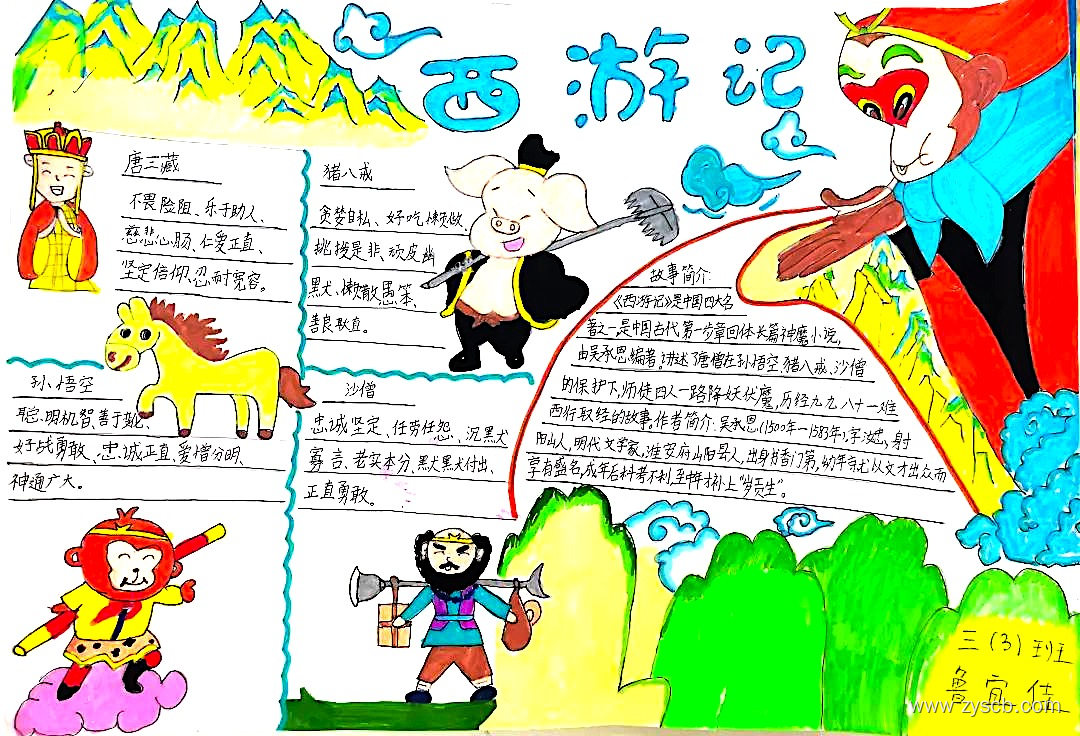 西游记
唐三藏
不畏险阻、乐于助人、
慈悲心肠、仁爱正直、
坚定信仰、忍耐宽容。
猪八戒
贪婪自私、好吃懒做、
挑拨是非、顽皮幽
黑犬、懒散愚笨、
善良耿直。
孙悟空
聪明机智、善于变化、
好战勇敢、忠诚正直、爱憎分明、
神通广大。
沙僧
忠诚坚定、任劳任怨、沉黑犬
寡言、老实本分、黑犬黑犬付出、
正直勇敢。
故事简介
《西游记》是中国四大名
著之一是中国古代第一步章回体长篇神魔小说,
由吴承恩编著。讲述了唐僧在孙悟空、猪八戒、沙僧
的保护下,师徒四人一路降妖伏魔,历经九九八十一难
西行取经的故事。作者简介:吴承恩(1500年—1583年,字汝忠,射
阳山人,明代文学家,淮安府山阳县人,出身书香门第,幼年时尤以文才出众而
享有盛名,成年后科考不利,至中年才补上"岁贡生"。
三(3)班
鲁宜佳
www.zyscb.com